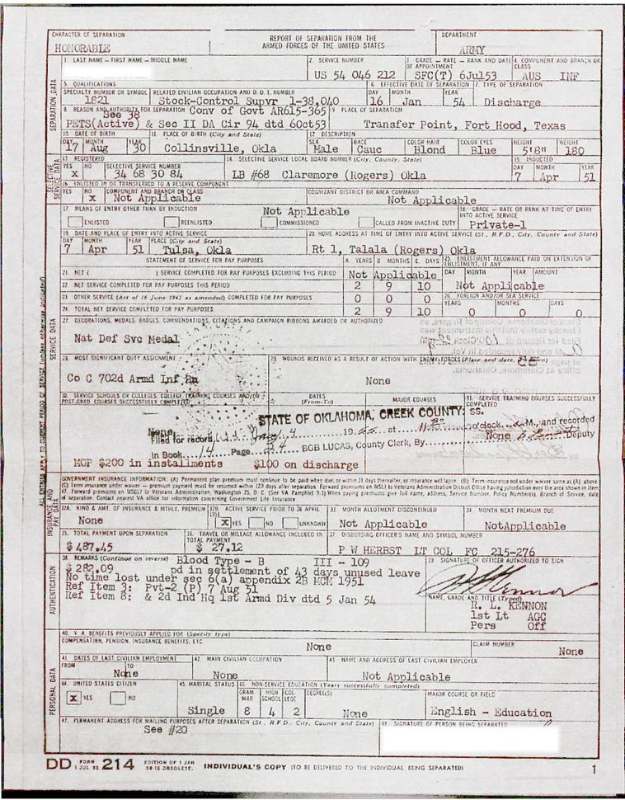 CHARACTER OF SEPARATION
HONORABLE
REPORT OF SEPARATION FROM THE
ARMED FORCES OF THE UNITED STATES
DEPARTMENT
ARMY
1. LAST NAME - FIRST NAME - MIDDLE NAME
2. SERVICE NUMBER
US 54 046 212
3. GRADE - RATE - RANK AND DATE OF APPOINTMENT
SFC(T) 6Jul53
4. COMPONENT AND BRANCH OR CLASS
AUS INF
5. QUALIFICATIONS
SPECIALTY NUMBER OR SYMBOL
1821
RELATED CIVILIAN OCCUPATION AND D.O.T. NUMBER
Stock-Control Supvr 1-38.040
6. EFFECTIVE DATE OF SEPARATION
DAY MONTH YEAR
16 Jan 54
7. TYPE OF SEPARATION
Discharge
8. REASON AND AUTHORITY FOR SEPARATION
See 38 Conv of Govt AR615-365
PETS(Active) & Sec II DA Cir 94 dtd 6Oct53
9. PLACE OF SEPARATION
Transfer Point, Fort Hood, Texas
10. DATE OF BIRTH
DAY MONTH YEAR
17 Aug 30
11. PLACE OF BIRTH (City and State)
Collinsville, Okla
12. DESCRIPTION
SEX RACE COLOR HAIR COLOR EYES HEIGHT WEIGHT
Male Cauc Blond Blue 5'8" 180
13. REGISTERED
YES NO
X
SELECTIVE SERVICE NUMBER
34 68 30 84
14. SELECTIVE SERVICE LOCAL BOARD NUMBER (City, County, State)
LB #68 Claremore (Rogers) Okla
15. INDUCTED
DAY MONTH YEAR
7 Apr 51
16. ENLISTED IN OR TRANSFERRED TO A RESERVE COMPONENT
YES NO
X
COMPONENT AND BRANCH OR CLASS
Not Applicable
COGNIZANT DISTRICT OR AREA COMMAND
Not Applicable
17. MEANS OF ENTRY OTHER THAN BY INDUCTION
Not Applicable
ENLISTED REENLISTED COMMISSIONED CALLED FROM INACTIVE DUTY
18. GRADE - RATE OR RANK AT TIME OF ENTRY INTO ACTIVE SERVICE
Private-1
19. DATE AND PLACE OF ENTRY INTO ACTIVE SERVICE
DAY MONTH YEAR PLACE (City and State)
7 Apr 51 Tulsa, Okla
20. HOME ADDRESS AT TIME OF ENTRY INTO ACTIVE SERVICE (St., R.F.D., City, County and State)
Rt 1, Talala (Rogers) Okla
STATEMENT OF SERVICE FOR PAY PURPOSES
A. YEARS B. MONTHS C. DAYS
21. NET ( ) SERVICE COMPLETED FOR PAY PURPOSES EXCLUDING THIS PERIOD
Not Applicable
22. NET SERVICE COMPLETED FOR PAY PURPOSES THIS PERIOD
2 9 10
23. OTHER SERVICE (Act of 16 June 1942 as amended) COMPLETED FOR PAY PURPOSES
0 0 0
24. TOTAL NET SERVICE COMPLETED FOR PAY PURPOSES
2 9 10
25. ENLISTMENT ALLOWANCE PAID ON EXTENSION OF ENLISTMENT, IF ANY
DAY MONTH YEAR AMOUNT
Not Applicable
26. FOREIGN AND/OR SEA SERVICE
YEARS MONTHS DAYS
0 0 0
27. DECORATIONS, MEDALS, BADGES, COMMENDATIONS, CITATIONS AND CAMPAIGN RIBBONS AWARDED OR AUTHORIZED
Nat Def Svc Medal
28. MOST SIGNIFICANT DUTY ASSIGNMENT
Co C 702d Armd Inf Bn
29. WOUNDS RECEIVED AS A RESULT OF ACTION WITH ENEMY FORCES (Place and date, if any)
None
30. SERVICE SCHOOLS OR COLLEGES, COLLEGE TRAINING COURSES AND/OR POST-GRAD. COURSES SUCCESSFULLY COMPLETED
DATES (From-To)
MAJOR COURSES
None
31. SERVICE TRAINING COURSES SUCCESSFULLY COMPLETED
None
STATE OF OKLAHOMA, CREEK COUNTY: SS.
Filed for record o'clock M., and recorded
In Book 14 Page
BOB LUCAS, County Clerk, By Deputy
MOP $200 in installments $100 on discharge
GOVERNMENT INSURANCE INFORMATION:
32A. KIND & AMT. OF INSURANCE & MTHLY. PREMIUM
None
32B. ACTIVE SERVICE PRIOR TO 26 APRIL 1951
X YES NO UNKNOWN
33. MONTH ALLOTMENT DISCONTINUED
Not Applicable
34. MONTH NEXT PREMIUM DUE
NotApplicable
35. TOTAL PAYMENT UPON SEPARATION
$ 487.45
36. TRAVEL OR MILEAGE ALLOWANCE INCLUDED IN TOTAL PAYMENT
$ 27.12
37. DISBURSING OFFICER'S NAME AND SYMBOL NUMBER
P W HERBST LT COL FC 215-276
38. REMARKS (Continue on reverse)
Blood Type - B III - 109
$ 282.09 pd in settlement of 43 days unused leave
No time lost under sec 6(a) appendix 2B MCM 1951
Ref Item 3: Pvt-2 (P) 7 Aug 51
Ref Item 8: & 2d Ind Hq 1st Armd Div dtd 5 Jan 54
39. SIGNATURE OF OFFICER AUTHORIZED TO SIGN
NAME, GRADE AND TITLE (Typed)
R. L. KENNON
1st Lt AGC
Pers Off
40. V. A. BENEFITS PREVIOUSLY APPLIED FOR (Specify type)
COMPENSATION, PENSION, INSURANCE BENEFITS, ETC.
None
CLAIM NUMBER
None
41. DATES OF LAST CIVILIAN EMPLOYMENT
FROM TO
None
42. MAIN CIVILIAN OCCUPATION
None
43. NAME AND ADDRESS OF LAST CIVILIAN EMPLOYER
Not Applicable
44. UNITED STATES CITIZEN
X YES NO
45. MARITAL STATUS
Single
46. NON-SERVICE EDUCATION (Years successfully completed)
GRAM MAR HIGH SCHOOL COL LEGE DEGREE(S)
8 4 2 None
MAJOR COURSE OR FIELD
English - Education
47. PERMANENT ADDRESS FOR MAILING PURPOSES AFTER SEPARATION (St., R.F.D., City, County and State)
See #20
48. SIGNATURE OF PERSON BEING SEPARATED
DD FORM 1 JUL 52 214
EDITION OF 1 JAN 50 IS OBSOLETE.
INDIVIDUAL'S COPY (TO BE DELIVERED TO THE INDIVIDUAL BEING SEPARATED)
1